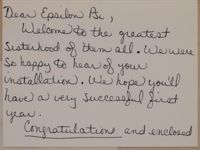 Dear Epsilon Psi,
Welcome to the greatest
sisterhood of them all. We were
so happy to hear of your
installation. We hope you'll
have a very successful first
year.
Congratulations and enclosed